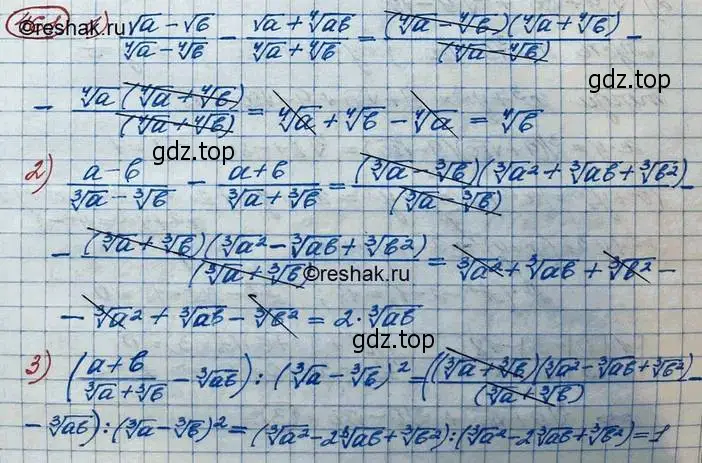 ©reshak.ru
(√a − √b)/(⁴√a − ⁴√b) − (√a + ⁴√ab)/(⁴√a + ⁴√b) = ((⁴√a − ⁴√b)(⁴√a + ⁴√b))/((⁴√a − ⁴√b)) −
gdz.top
− (⁴√a (⁴√a + ⁴√b))/((⁴√a + ⁴√b)) = ⁴√a + ⁴√b − ⁴√a = ⁴√b
gdz.top
2) (a − b)/(³√a − ³√b) − (a + b)/(³√a + ³√b) = ((³√a − ³√b)(³√a² + ³√ab + ³√b²))/((³√a − ³√b)) −
gdz.top
− ((³√a + ³√b)(³√a² − ³√ab + ³√b²))/((³√a + ³√b)) = ³√a² + ³√ab + ³√b² −
©reshak.ru
− ³√a² + ³√ab − ³√b² = 2·³√ab
gdz.top
3) ((a + b)/(³√a + ³√b) − ³√ab) : (³√a − ³√b)² = (((³√a + ³√b)(³√a² − ³√ab + ³√b²))/((³√a + ³√b)) −
− ³√ab) : (³√a − ³√b)² = (³√a² − 2³√ab + ³√b²) : (³√a² − 2³√ab + ³√b²) = 1